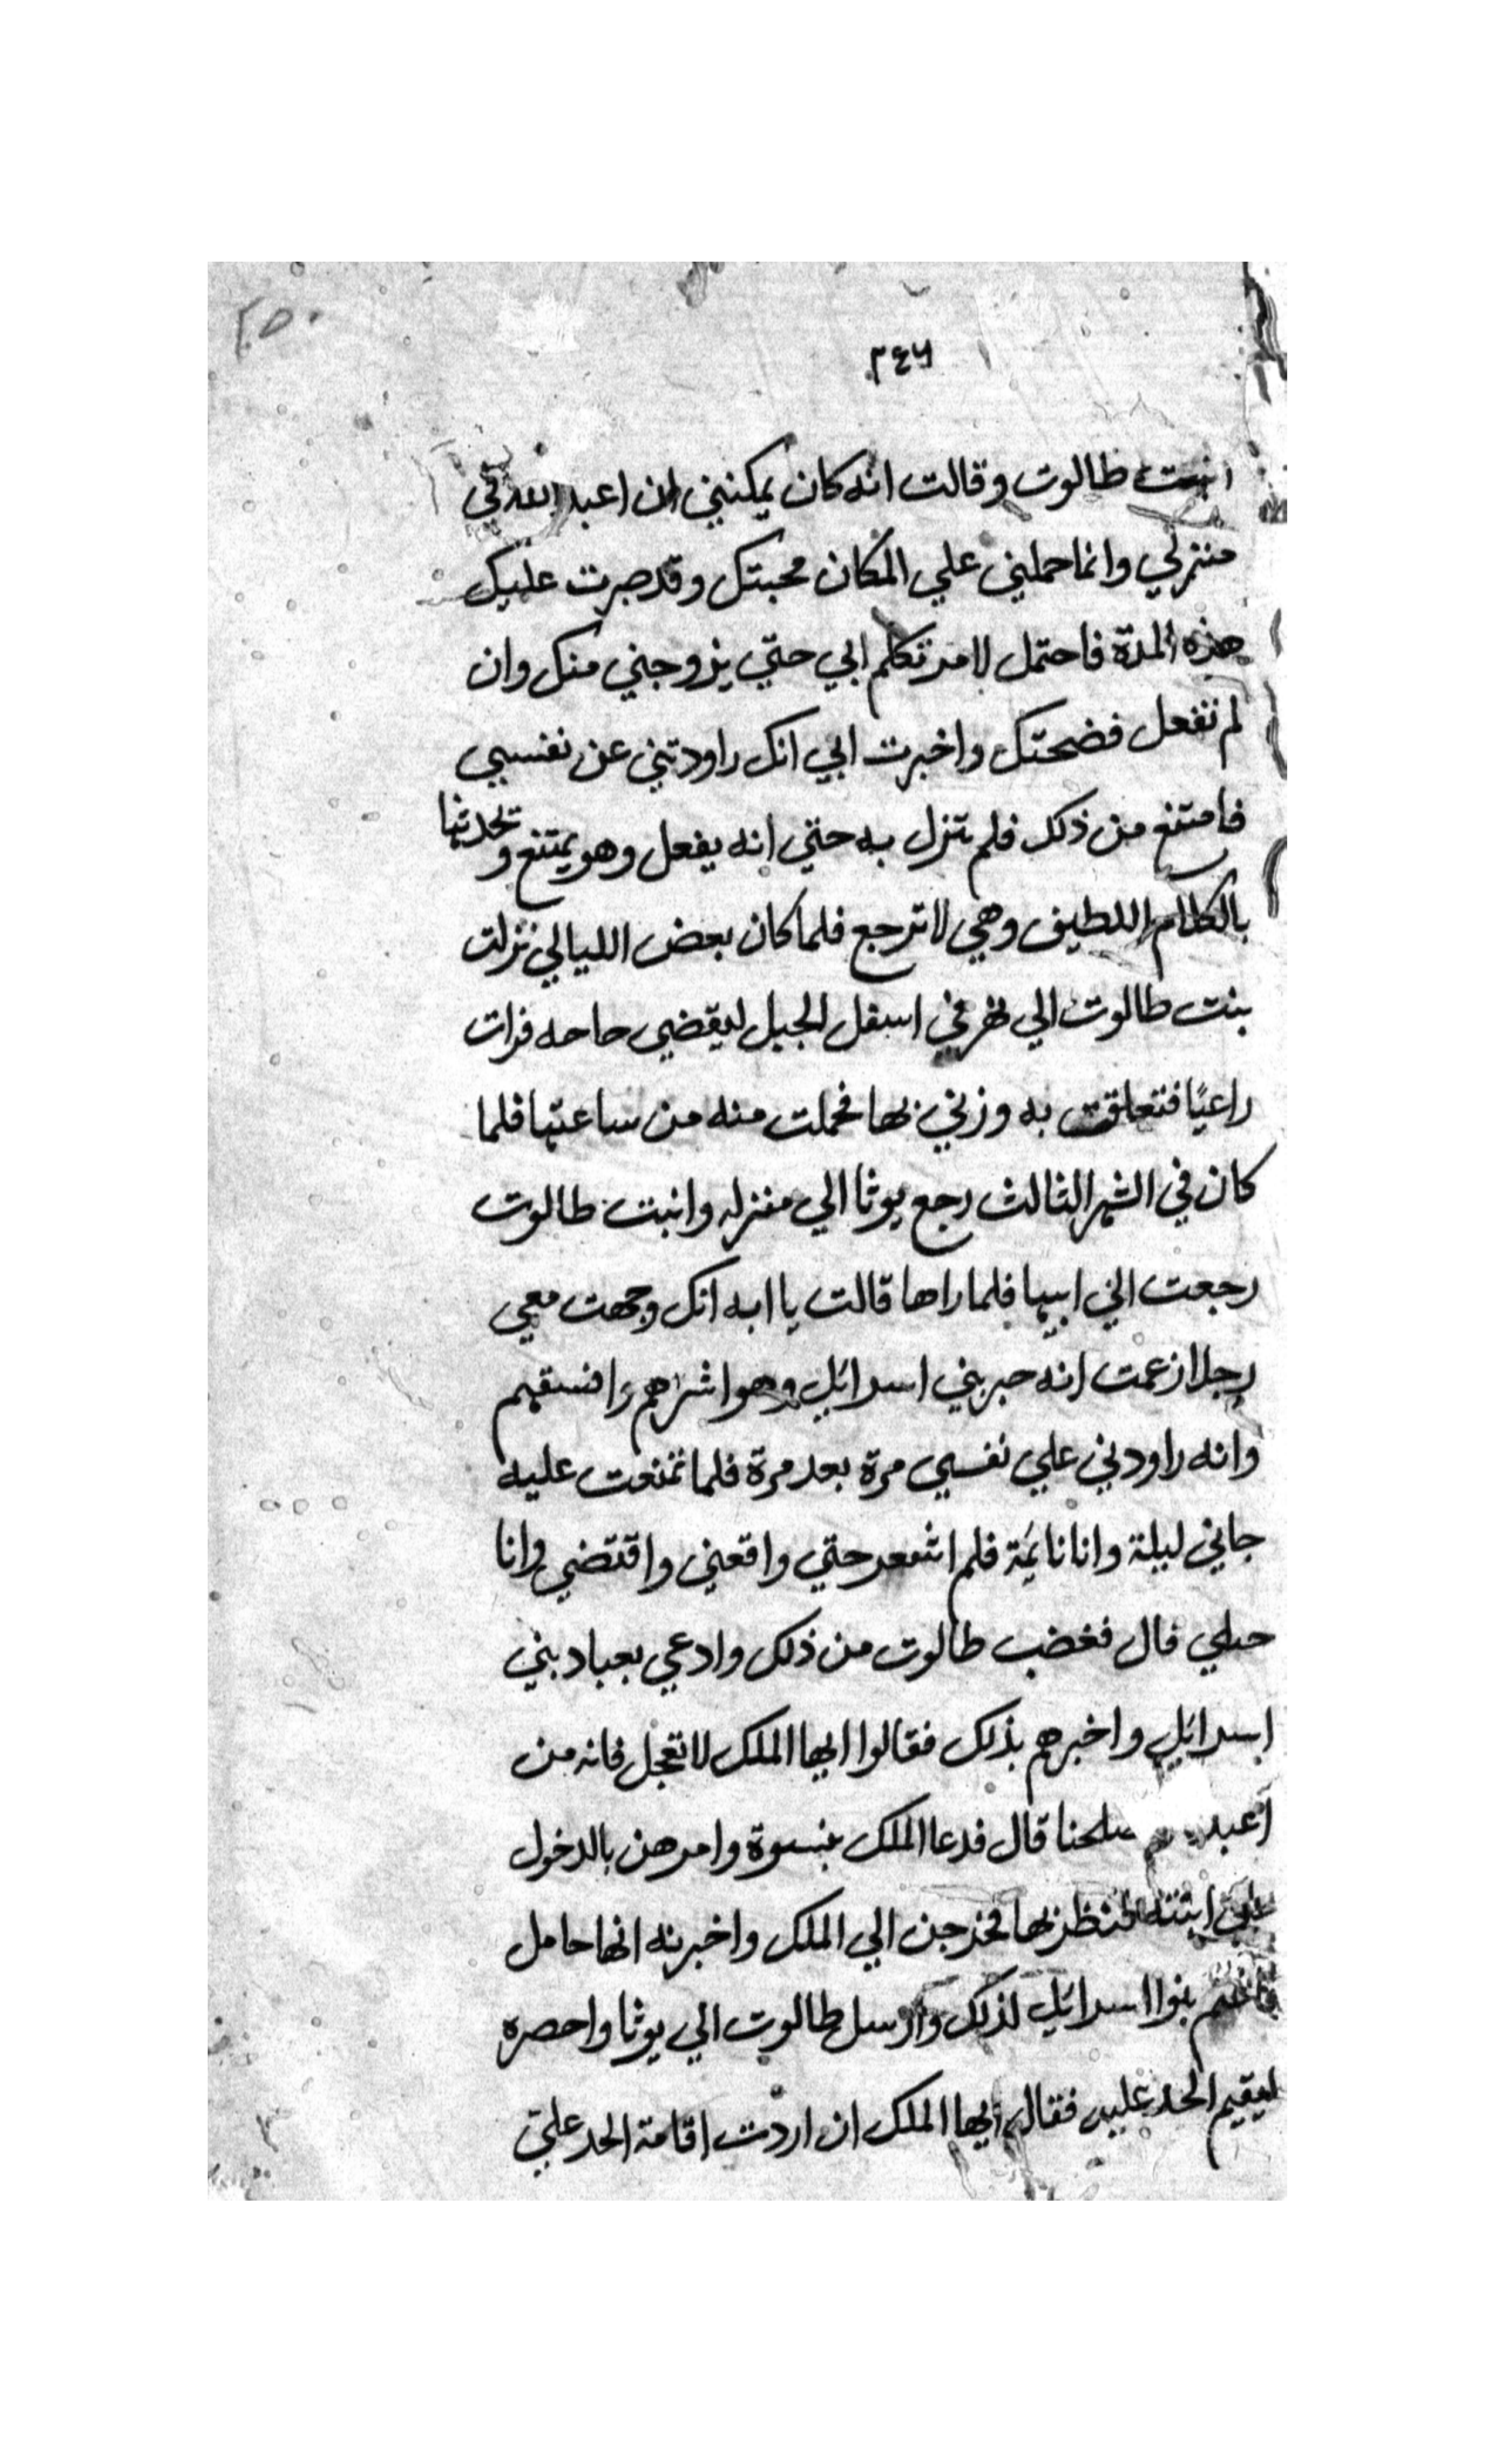 ٢٥٠
٢٤٦
ابنت طالوت وقالت انه كان يمكنني ان اعبد الله في
منزلي وانما حملني علي المكان محبتك وقد صبرت عليك
هذه المدة فاحتمل لامر تكلم ابي حتي يزوجني منك وان
لم تفعل فضحتك واخبرت ابي انك راودتني عن نفسي
فامتنع من ذلك فلم تنزل به حتي انه يفعل وهو يمتنع ويحدثها
بالكلام اللطيف وهي لا ترجع فلما كان بعض الليالي نزلت
بنت طالوت الي نهر في اسفل الجبل ليقضي حاحه فرات
راعيًا فتعلقت به وزني بها فحملت منه من ساعتها فلما
كان في الشهر الثالث رجع يوثا الي منزله وابنت طالوت
رجعت الي ابيها فلما راها قالت يا ابه انك وجهت معي
رجلا زعمت انه حبر بني اسرائيل وهو اشرهم وافسقهم
وانه راودني علي نفسي مرة بعد مرة فلما تمنعت عليه
جاني ليلة وانا نايمة فلم اشعر حتي واقعني واقتضي وانا
حبلي قال فغضب طالوت من ذلك وادعي بعباد بني
اسرائيل واخبرهم بذلك فقالوا ايها الملك لا تعجل فانه من
اعبد صلحنا قال فدعا الملك بنسوة وامرهن بالدخول
علي ابنته فنظرنها فخرجن الي الملك واخبرنه انها حامل
بنوا اسرائيل لذلك وارسل طالوت الي يوثا واحصره
ليقيم الحد عليه فقال ايها الملك ان اردت اقامة الحد علي